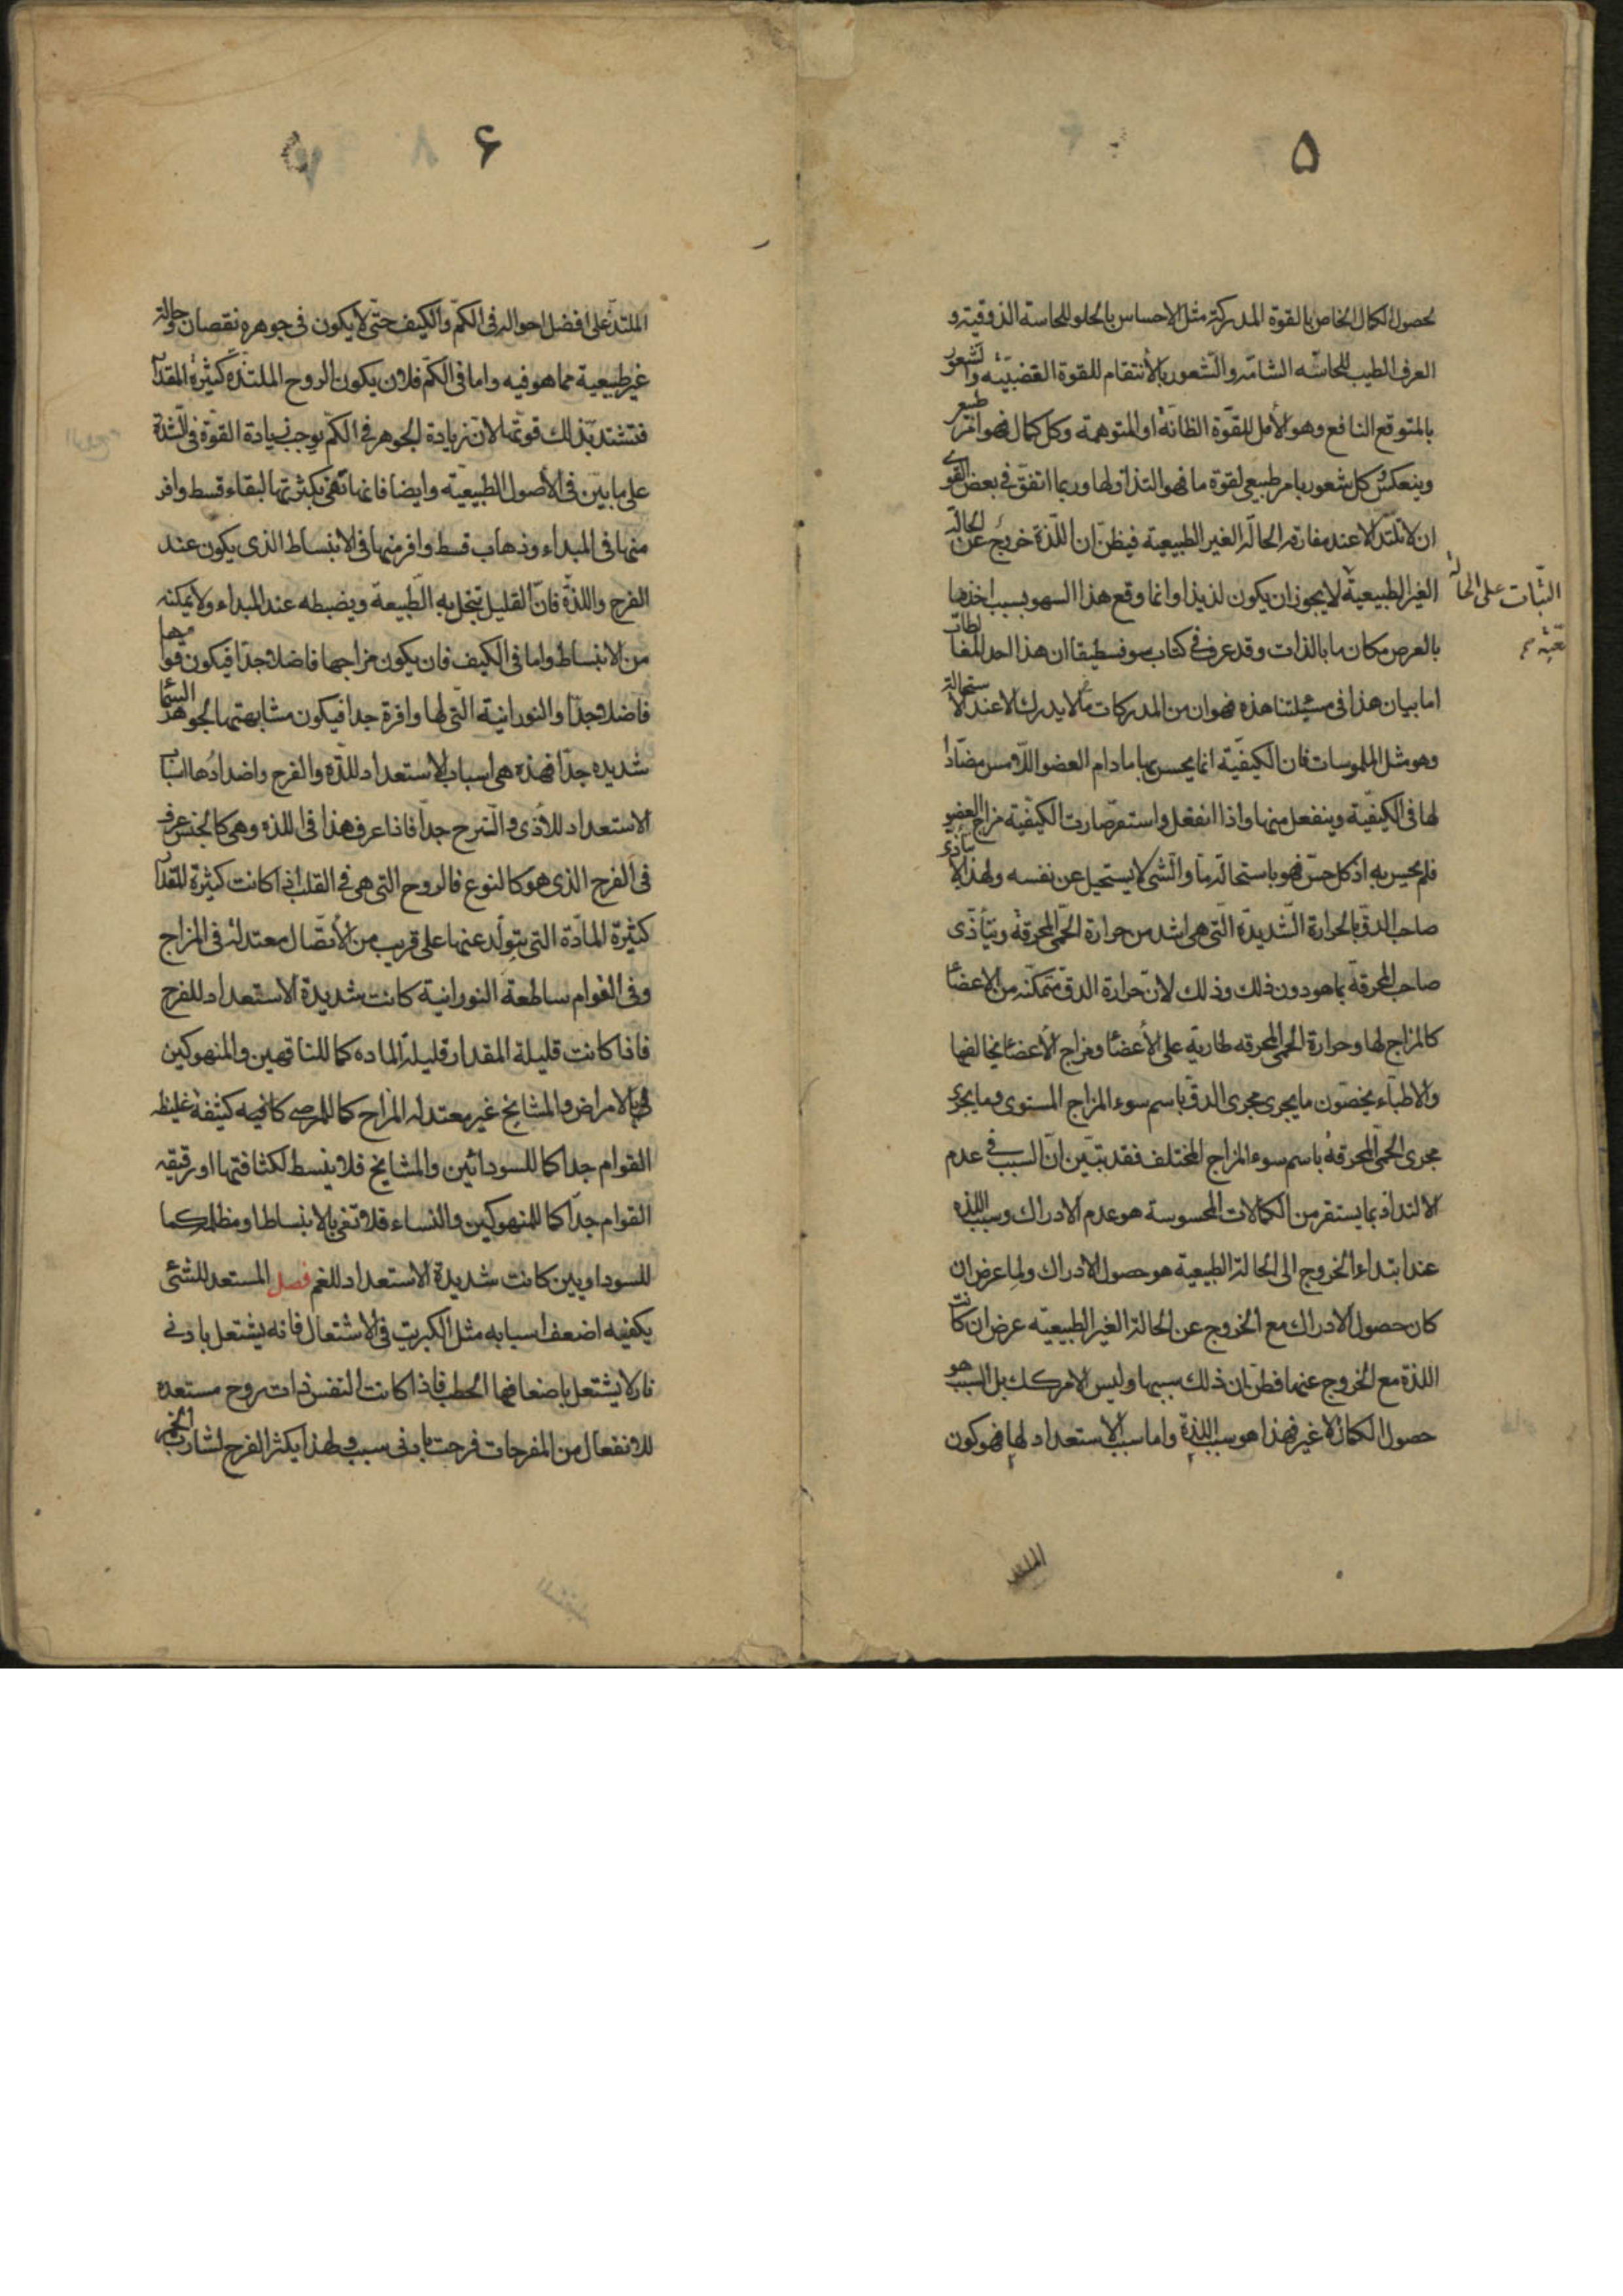 ۵
لحصول الكمال الخاص بالقوة المدركة مثل الاحساس بالحلو للحاسة الذوقية و
العرف الطيب للحاسّه الشامّه و الشعور بالأنتقام للقوة الغضبيّه و الشعور
بالمتوقع النافع وهو الأمل للقوّة الظانّة او المتوهمة وكل كمال فهو امر طبيعى
وينعكس و كل شعور بامر طبيعى لقوة ما فهو التذاذ لها وربما اتفق فى بعض القوى
ان لا تلتذ الا عند مفارقه الحالة الغير الطبيعية فيظنّ ان اللّذة خروج عن الحالة
الغير الطبيعية لا يجوز ان يكون لذيذا وانما وقع هذا السهو بسبب اخذ ما
الثبات على الحالة
بالعرض مكان ما بالذات وقد عرف فى كتاب سوفسطيقا ان هذا احد المغالطات
اما بيان هذا فى مسئلتنا هذه فهو ان من المدركات ما لا يدرك الا عند الاستحالة
وهو مثل الملموسات فان الكيفيّة انما يحس بها ما دام العضو اللّامس مضادا
لها فى الكيفيّة وينفعل منها واذا انفعل واستقرّ صارت الكيفيّة مزاج العضو
فلم يحس به اذ كل حسّ فهو باستحالة ما والشى لا يستحيل عن نفسه ولهذا لا يتأذى
صاحب الدق بالحرارة الشديدة التى هى اشد من حرارة الحمّى المحرقة ويتأذّى
صاحب المحرقة بما هو دون ذلك وذلك لانّ حرارة الدق متمكّنه من الاعضا
كالمزاج لها وحرارة الحمى المحرقه طارية على الأعضا ومزاج الأعضا يخالفها
والاطبّاء يخصّون ما يجرى مجرى الدق باسم سوء المزاج المستوى وما يجرى
مجرى الحمّى المحرقة باسم سوء المزاج المختلف فقد تبيّن انّ السبب فى عدم
الالتذاذ بما يستقر من الكمالات المحسوسة هو عدم الادراك وسبب اللذه
عند ابتداء الخروج الى الحالة الطبيعية هو حصول الادراك ولما عرض ان
كان حصول الادراك مع الخروج عن الحالة الغير الطبيعيّه عرض ان كانت
اللذة مع الخروج عنها فظنّ ان ذلك سببها وليس الامر كك بل السبب هو
حصول الكمال لا غير فهذا هو سبب اللذة واما سبب الاستعداد لها فهو كون
الملتذ
۶
الملتذّ على افضل احواله فى الكمّ والكيف حتى لا يكون فى جوهره نقصان و حالة
غير طبيعية مما هو فيه واما فى الكمّ فلان يكون الروح الملتذّه كثيرة المقدار
فتشتد بذلك قوتها لان زيادة الجوهر فى الكمّ يوجب زيادة القوّة فى الشدة
على ما بيّن فى الأصول الطبيعيّه وايضا فانها تفى بكثرتها لبقاء قسط وافر
منها فى المبداء وذهاب قسط وافر منها فى الانبساط الذى يكون عند
الفرح واللذة فانّ القليل تبخل به الطّبيعة ويضبطه عند المبداء ولا يمكنه
من الانبساط واما فى الكيف فان يكون مزاجها فاضلا جدّا فيكون قواها
فاضلا جدّا والنورانية التى لها وافرة جدا فيكون مشابهتها لجوهر السما
شديده جدّا فهذه هى اسباب الاستعداد للذّه والفرح واضدادها اسباب
الاستعداد للأذى و الترح جدّا فاذا عرف هذا فى اللذه وهى كالجنس عرف
فى الفرح الذى هو كالنوع فالروح التى هى فى القلب اذا كانت كثيرة المقدار
كثيرة المادّة التى يتولّد عنها على قريب من الأتصّال معتدلة فى المزاج
وفى القوام ساطعة النورانية كانت شديدة الاستعداد للفرح
فاذا كانت قليلة المقدار قليلة الماده كما للناقهين والمنهوكين
بالامراض والمشايخ غير معتدله المزاج كما للمرضى كانه كثيفة غليظه
القوام جدا كما للسودائين والمشايخ فلا ينبسط لكثافتها او رقيقه
القوام جدّا كما للمنهوكين والنساء فلا تفى بالانبساط او مظلمه كما
للسوداويين كانت شديدة الاستعداد للغم فصل المستعد للشئى
يكفيه اضعف اسبابه مثل الكبريت فى الاشتعال فانه يشتعل بادنى
نار لا يشتعل باضعافها الحطب فاذا كانت النفس ذات روح مستعده
للانفعال من المفرحات فرحت بادنى سبب ولهذا يكثر الفرح لشارب الخمر